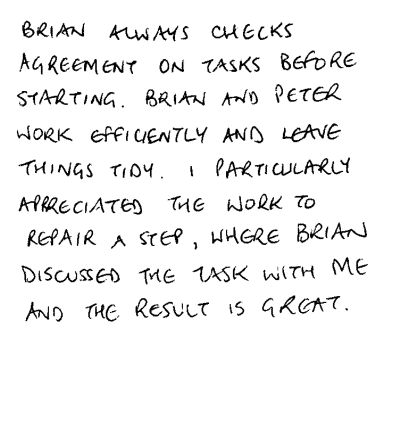 BRIAN ALWAYS CHECKS
AGREEMENT ON TASKS BEFORE
STARTING. BRIAN AND PETER
WORK EFFICIENTLY AND LEAVE
THINGS TIDY. I PARTICULARLY
APPRECIATED THE WORK TO
REPAIR A STEP, WHERE BRIAN
DISCUSSED THE TASK WITH ME
AND THE RESULT IS GREAT.